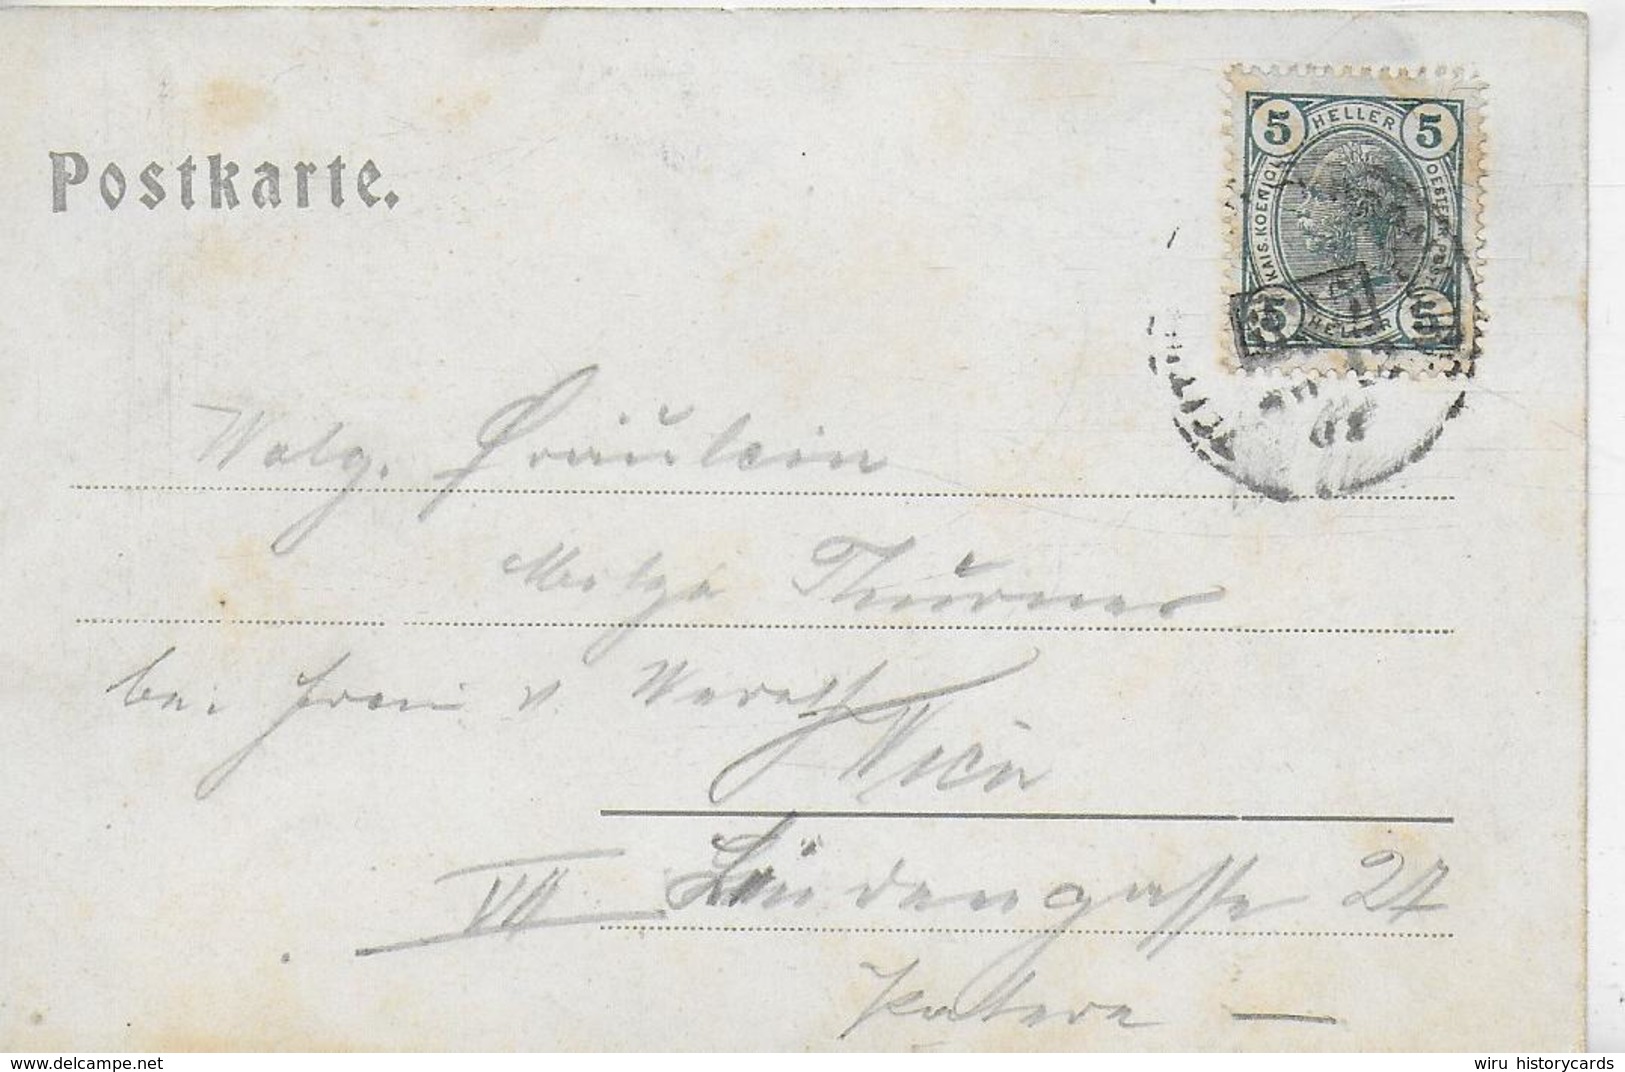 Postkarte.
5 HELLER 5
KAIS. KOENIGL. OESTERR. POST
5 HELLER 5
Wolg. Fräulein
Mitza Thurner
bei Frau v.
Wien
VII Lindengasse 27
Patere —
wiru historycards